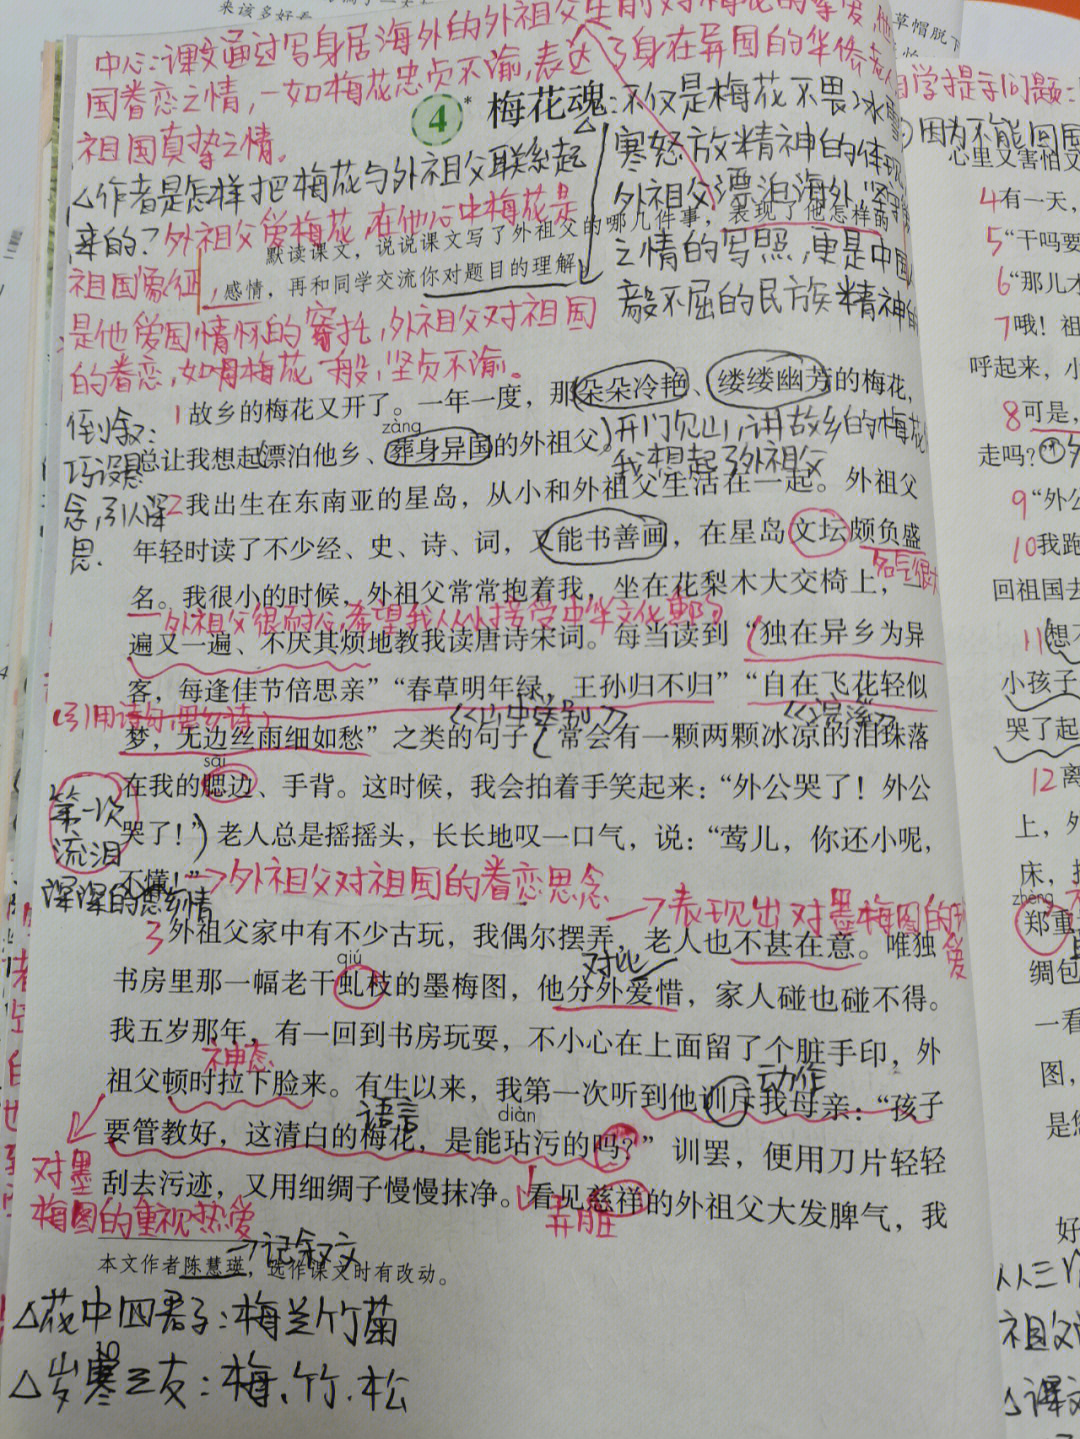 来该多好看
草帽脱下
中心:课文通过写身居海外的外祖父生前对梅花的挚爱,
国眷恋之情,一如梅花忠贞不渝,表达了身在异国的华侨
祖国真挚之情。
4* 梅花魂:不仅是梅花不畏冰
寒怒放精神的体现
外祖父漂泊海外
之情的写照,更是中国
毅不屈的民族精神的
△作者是怎样把梅花与外祖父联系起
来的?外祖父爱梅花,在他心中梅花是
祖国象征,
是他爱国情怀的寄托,外祖父对祖国
的眷恋,如同梅花一般,坚贞不渝。
默读课文,说说课文写了外祖父的哪几件事,表现了他怎样的
感情,再和同学交流你对题目的理解
倒叙:
巧设悬
念,引人深
思.
1故乡的梅花又开了。一年一度,那朵朵冷艳、缕缕幽芳的梅花,
zàng
总让我想起漂泊他乡、葬身异国的外祖父。
开门见山,讲故乡的梅花
我想起了外祖父
2我出生在东南亚的星岛,从小和外祖父生活在一起。外祖父
年轻时读了不少经、史、诗、词,又能书善画,在星岛文坛颇负盛
名气很大
名。我很小的时候,外祖父常常抱着我,坐在花梨木大交椅上,一
外祖父很耐心,希望我从小接受中华文化
遍又一遍、不厌其烦地教我读唐诗宋词。每当读到“独在异乡为异
客,每逢佳节倍思亲”“春草明年绿,王孙归不归”“自在飞花轻似
(引用诗句,思乡诗)
《山中送别》
《浣溪》
梦,无边丝雨细如愁”之类的句子,常会有一颗两颗冰凉的泪珠落
sāi
在我的腮边、手背。这时候,我会拍着手笑起来:“外公哭了!外公
哭了!”老人总是摇摇头,长长地叹一口气,说:“莺儿,你还小呢,
不懂!”
→外祖父对祖国的眷恋思念
第一次
流泪
深深的思乡情
→表现出对墨梅图的
爱
3外祖父家中有不少古玩,我偶尔摆弄,老人也不甚在意。唯独
qiú
对比
书房里那一幅老干虬枝的墨梅图,他分外爱惜,家人碰也碰不得。
我五岁那年,有一回到书房玩耍,不小心在上面留了个脏手印,外
神态
动作
祖父顿时拉下脸来。有生以来,我第一次听到他训斥我母亲:“孩子
语言
diàn
要管教好,这清白的梅花,是能玷污的吗?”训罢,便用刀片轻轻
刮去污迹,又用细绸子慢慢抹净。看见慈祥的外祖父大发脾气,我
弄脏
对墨
梅图的重视热爱
→记叙文
本文作者陈慧瑛,选作课文时有改动。
△花中四君子:梅兰竹菊
△岁寒三友:梅、竹、松
自学提示问题:
因为不能回国
心里又害怕又
4有一天,
5“干吗要
6“那儿才
7哦!祖
呼起来,小
8可是,
走吗?”
9“外公
10我跑
回祖国去
11想不
小孩子
哭了起
12离
上,外
床,
zhèng
郑重
绸包
一看
图,
是您
好
祖父
△课文